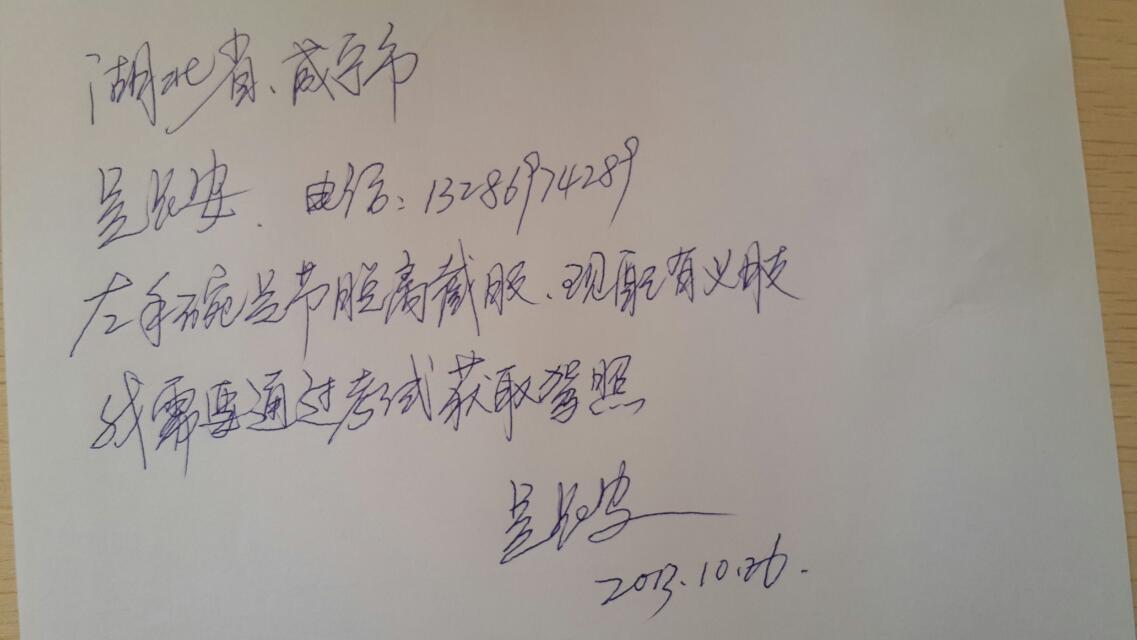 湖北省、咸宁市
吴 安. 电信:13286974289
左手碗关节脱离截肢、现配有义肢
我需要通过考试获取驾照
吴 安
2013.10.26.